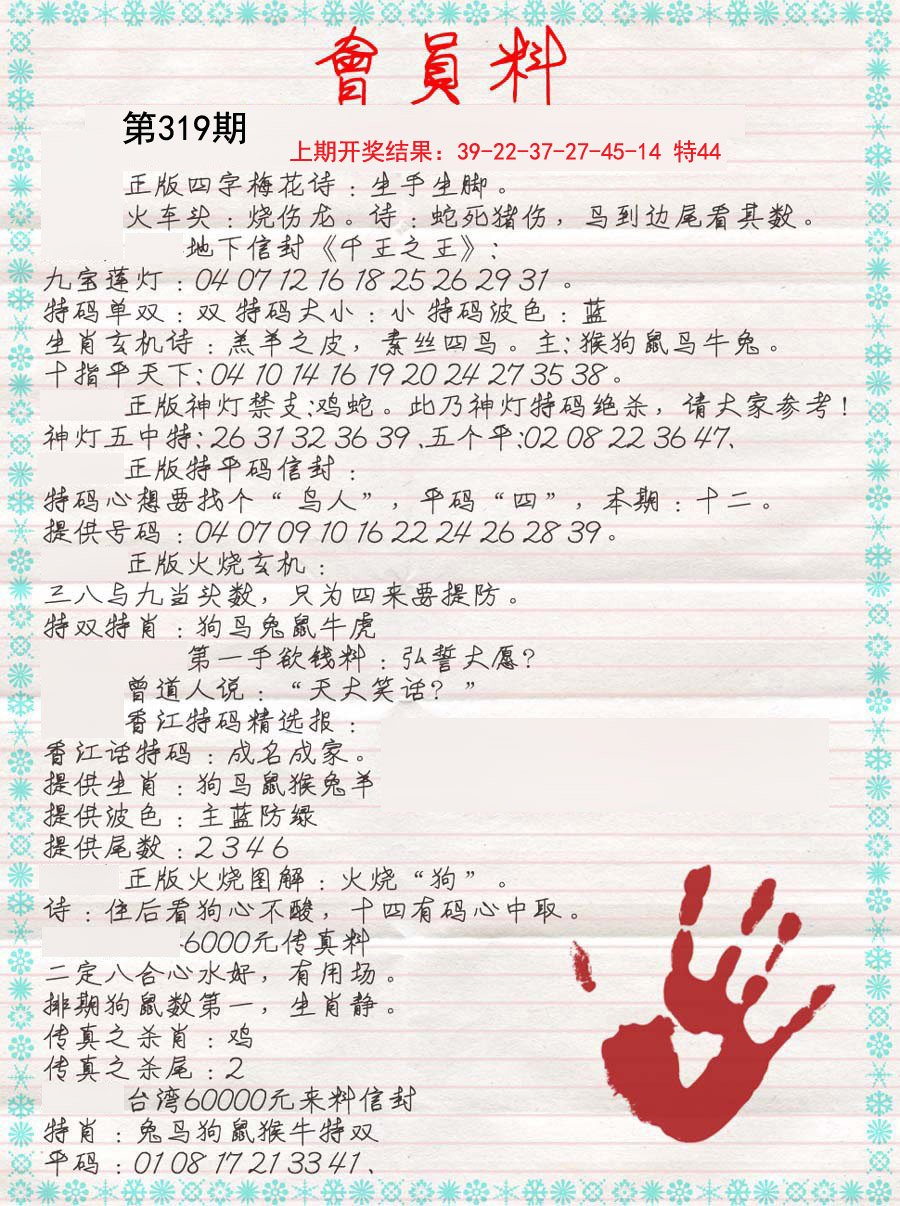 會員料
第319期
上期开奖结果：39-22-37-27-45-14 特44
正版四字梅花诗：生手生脚。
火车头：烧伤龙。诗：蛇死猪伤，鸟到边尾看其数。
地下信封《千王之王》：
九宝莲灯：04 07 12 16 18 25 26 29 31 。
特码单双：双 特码大小：小 特码波色：蓝
生肖玄机诗：羔羊之皮，素丝四鸟。主：猴狗鼠鸟牛兔。
十指平天下：04 10 14 16 19 20 24 27 35 38。
正版神灯禁支：鸡蛇。此乃神灯特码绝杀，请大家参考！
神灯五中特：26 31 32 36 39、五个平：02 08 22 36 47、
正版特平码信封：
特码心想要找个“鸟人”，平码“四”，本期：十二。
提供号码：04 07 09 10 16 22 24 26 28 39。
正版火烧玄机：
三八与九当头数，只为四来要提防。
特双特肖：狗鸟兔鼠牛虎
第一手欲钱料：弘誓大愿？
曾道人说：“天大笑话？”
香江特码精选报：
香江话特码：成名成家。
提供生肖：狗鸟鼠猴兔羊
提供波色：主蓝防绿
提供尾数：2 3 4 6
正版火烧图解：火烧“狗”。
诗：住后看狗心不酸，十四有码心中取。
6000元传真料
二定八合心水好，有用场。
排期狗鼠数第一，生肖静。
传真之杀肖：鸡
传真之杀尾：2
台湾60000元来料信封
特肖：兔鸟狗鼠猴牛特双
平码：01 08 17 21 33 41、